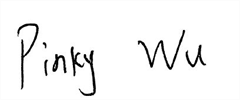 Pinky Wu